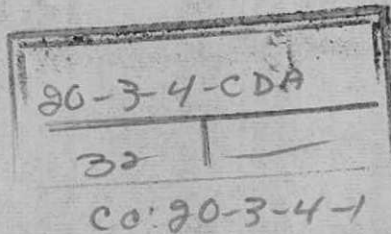 20-3-4-CDA
32 —
CO: 20-3-4-1